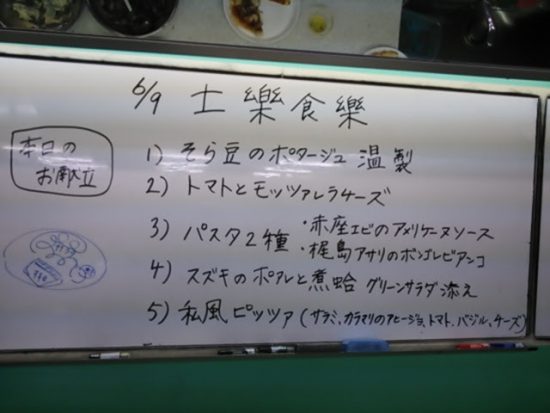 6/9 土樂食樂
本日の
お献立
1) そら豆のポタージュ 温製
2) トマトとモッツァレラチーズ
3) パスタ2種 ・赤座エビのアメリケーヌソース
・梶島アサリのボンゴレビアンコ
4) スズキのポアレと煮蛤 グリーンサラダ添え
5) 私風ピッツァ (サラミ、カラマリのアヒージョ、トマト、バジル、チーズ)